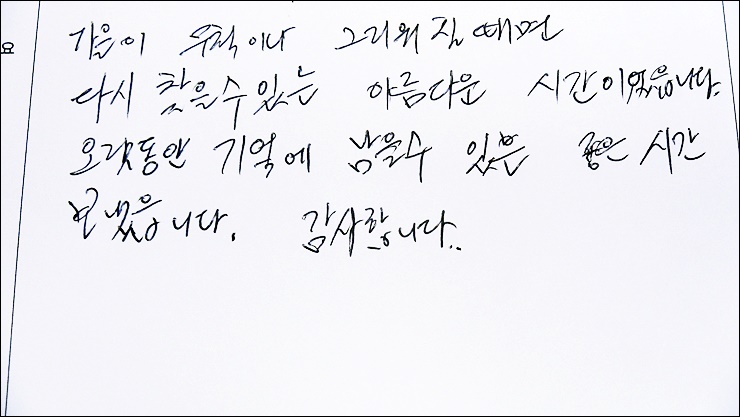 가을이 무척이나 그리워 질 때면
다시 찾을수 있는 아름다운 시간이었습니다.
오랫동안 기억에 남을수 있는 좋은 시간
보냈습니다. 감사합니다..